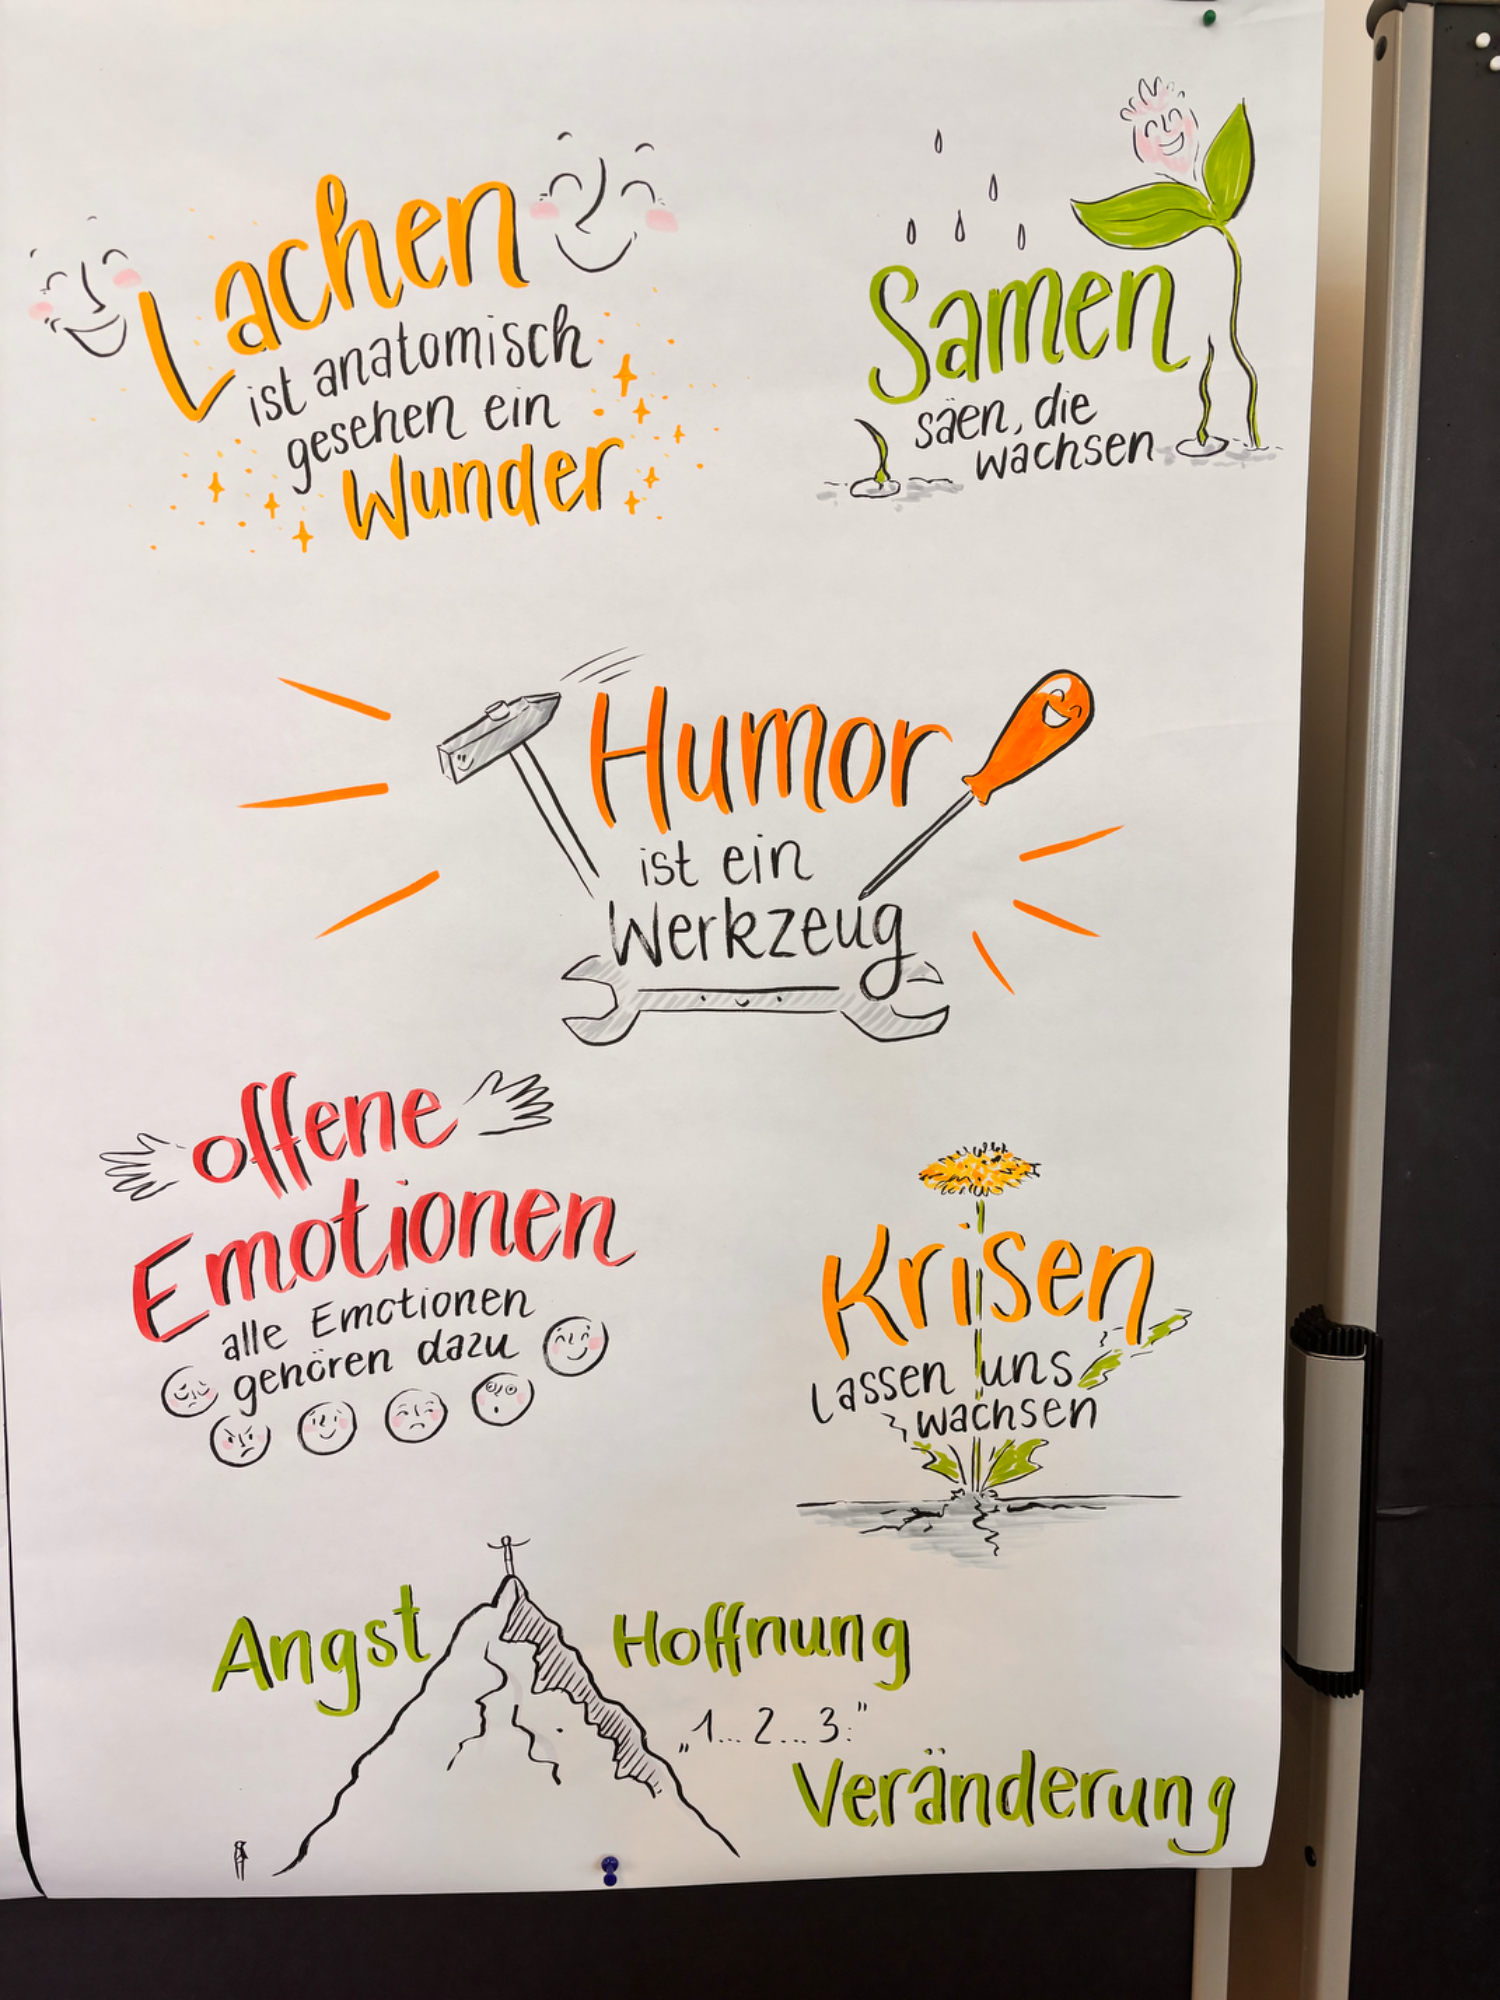 Lachen
ist anatomisch
gesehen ein
Wunder
Samen
säen, die
wachsen
Humor
ist ein
Werkzeug
offene
Emotionen
alle Emotionen
gehören dazu
Krisen
lassen uns
wachsen
Angst
Hoffnung
„1...2...3."
Veränderung